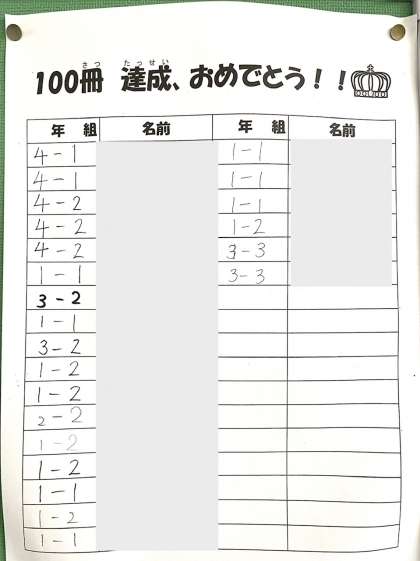 さつ たっせい
100冊 達成、おめでとう！！
年 組 名前 年 組 名前
4-1 1-1
4-1 1-1
4-2 1-1
4-2 1-2
4-2 3-3
1-1 3-3
3-2
1-1
3-2
1-2
1-2
2-2
1-2
1-2
1-1
1-2
1-1